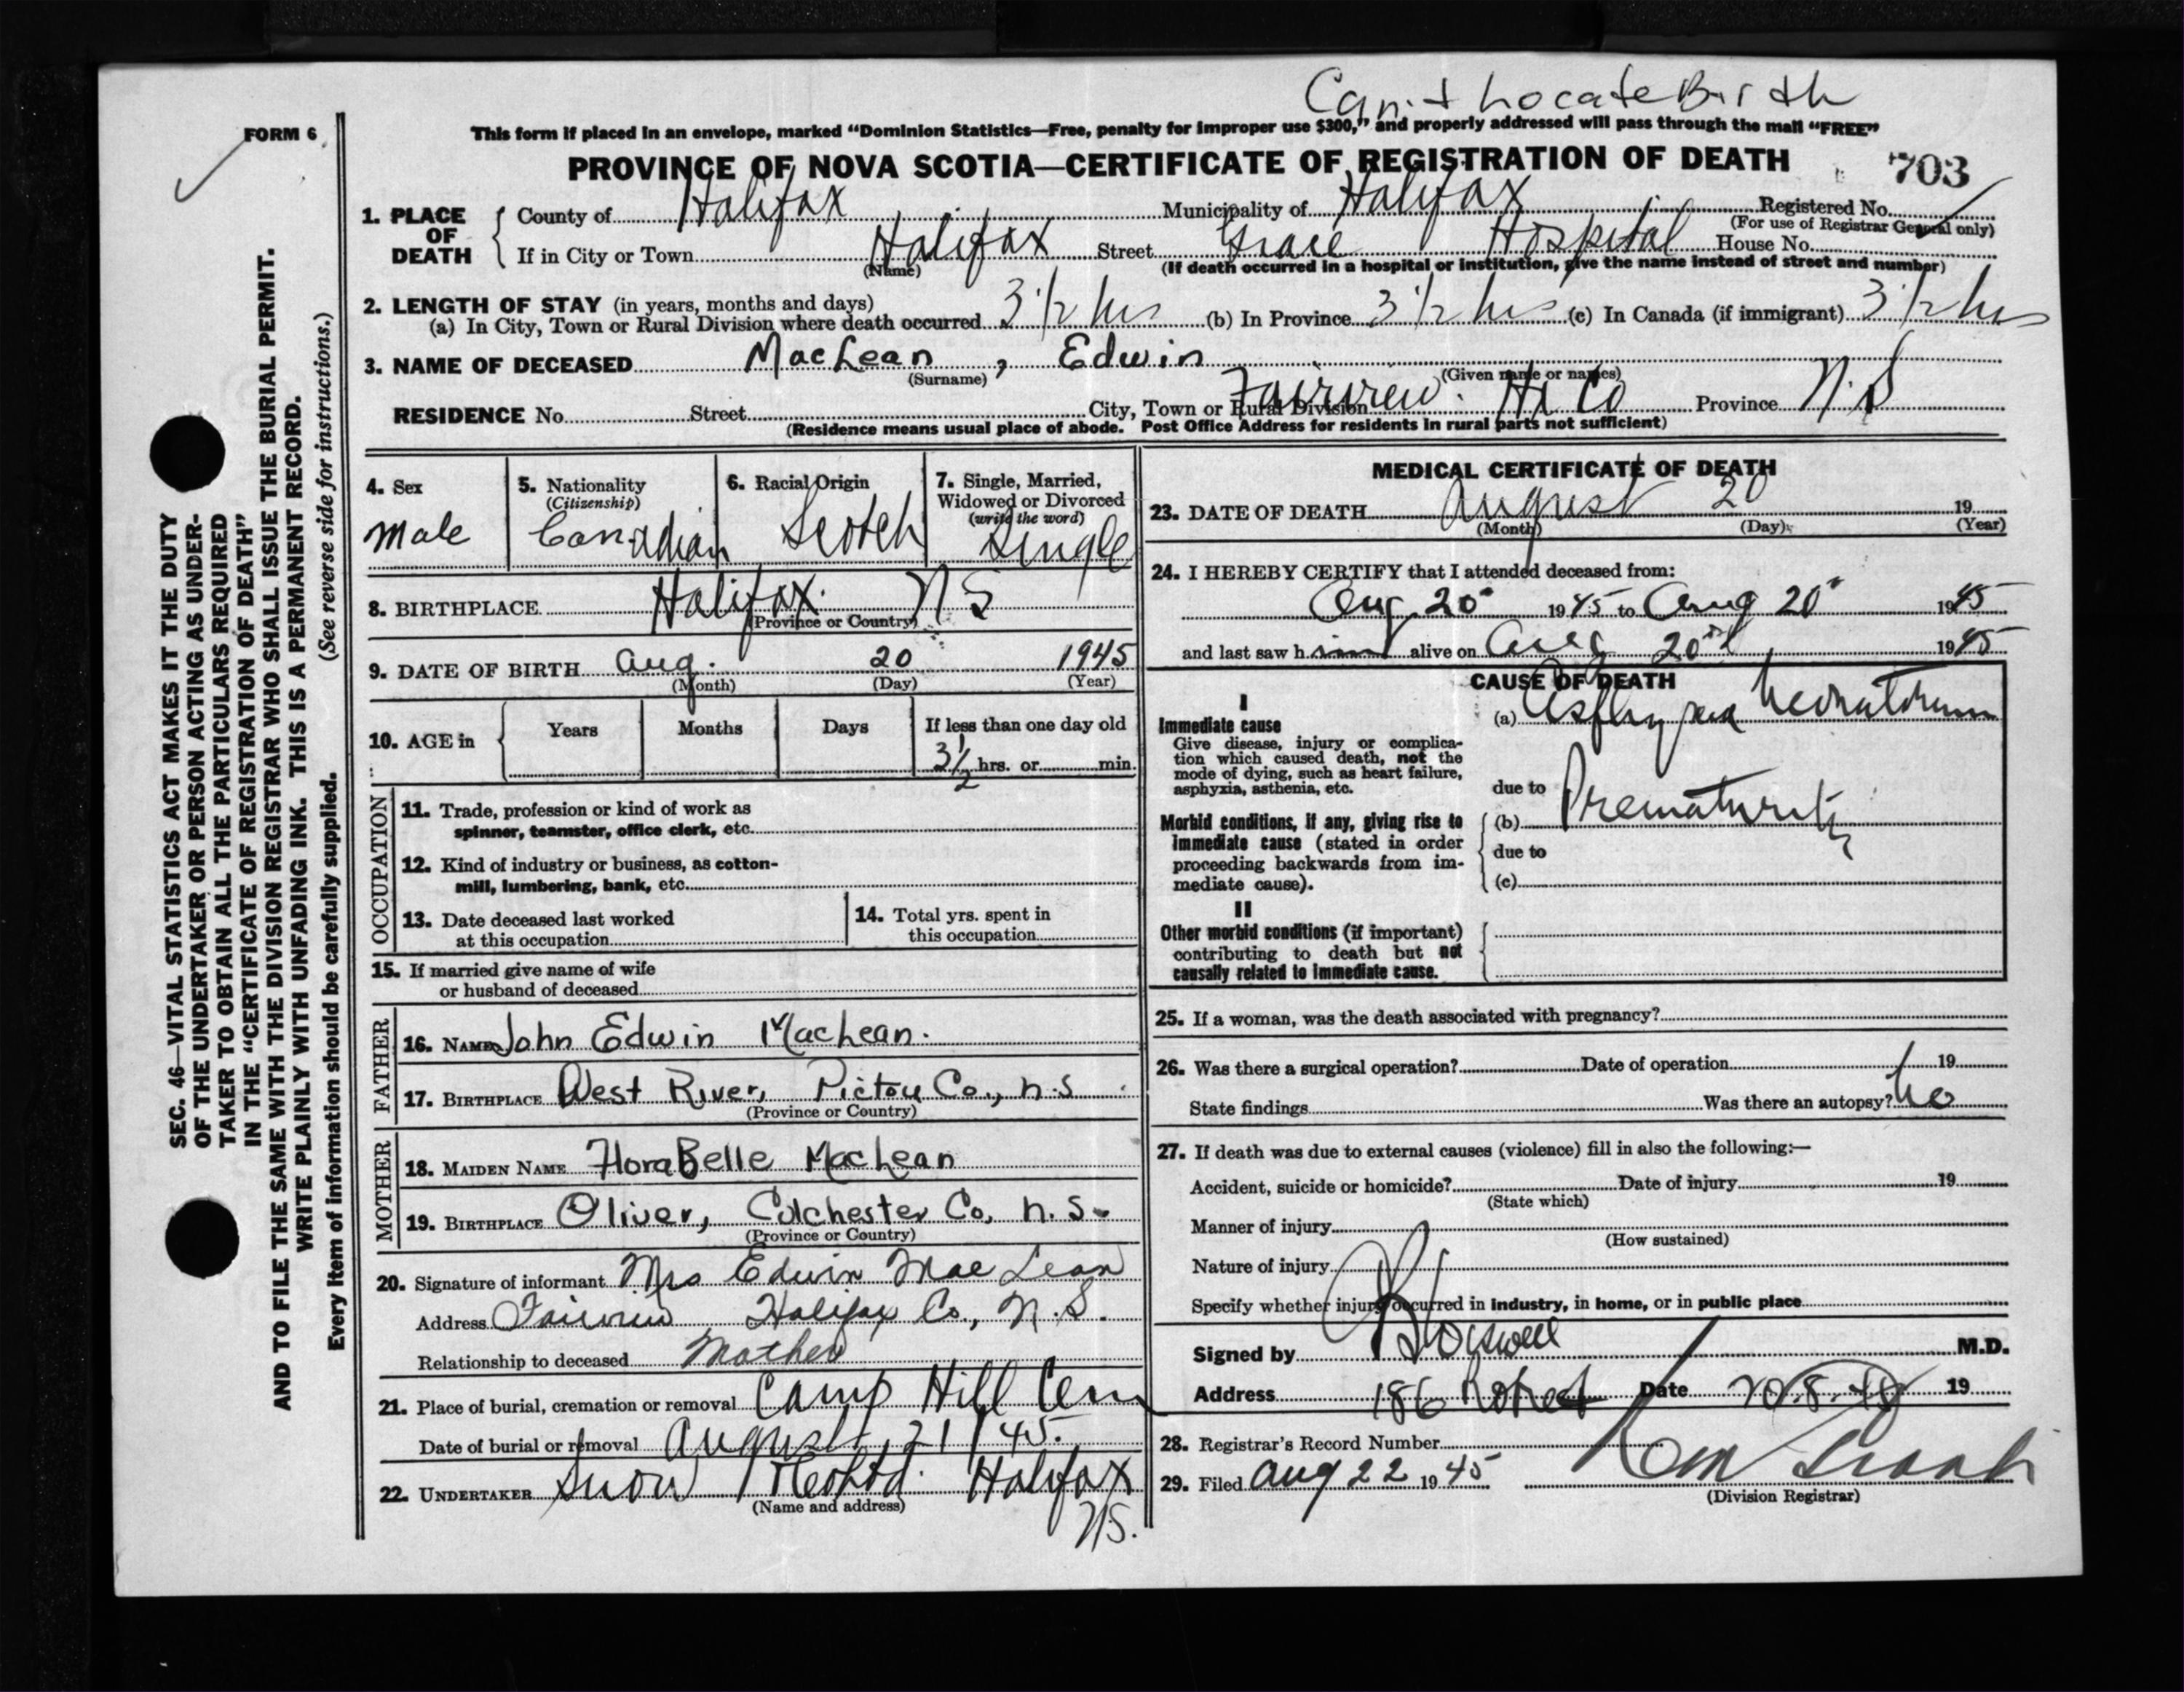 Can't Locate Birth
FORM 6
This form if placed in an envelope, marked “Dominion Statistics—Free, penalty for improper use $300,” and properly addressed will pass through the mail “FREE”
PROVINCE OF NOVA SCOTIA—CERTIFICATE OF REGISTRATION OF DEATH 703
1. PLACE OF DEATH County of Halifax Municipality of Halifax Registered No.
(For use of Registrar General only)
If in City or Town Halifax Street Grace Hospital House No.
(Name) (If death occurred in a hospital or institution, give the name instead of street and number)
2. LENGTH OF STAY (in years, months and days)
(a) In City, Town or Rural Division where death occurred 3 1/2 hrs (b) In Province 3 1/2 hrs (c) In Canada (if immigrant) 3 1/2 hrs
3. NAME OF DECEASED MacLean, Edwin
(Surname) (Given name or names)
RESIDENCE No. Street City, Town or Rural Division Fairview. Hx Co Province N.S
(Residence means usual place of abode. Post Office Address for residents in rural parts not sufficient)
4. Sex
Male
5. Nationality
(Citizenship)
Canadian
6. Racial Origin
Scotch
7. Single, Married,
Widowed or Divorced
(write the word)
Single
8. BIRTHPLACE Halifax. N S
(Province or Country)
9. DATE OF BIRTH Aug. 20 1945
(Month) (Day) (Year)
10. AGE in Years Months Days If less than one day old
3 1/2 hrs. or min.
OCCUPATION
11. Trade, profession or kind of work as
spinner, teamster, office clerk, etc.
12. Kind of industry or business, as cotton-
mill, lumbering, bank, etc.
13. Date deceased last worked
at this occupation
14. Total yrs. spent in
this occupation
15. If married give name of wife
or husband of deceased
FATHER
16. NAME John Edwin MacLean.
17. BIRTHPLACE West River, Pictou Co., N.S
(Province or Country)
MOTHER
18. MAIDEN NAME FloraBelle MacLean
19. BIRTHPLACE Oliver, Colchester Co, N.S.
(Province or Country)
20. Signature of informant Mrs Edwin MacLean
Address Fairview Halifax Co., N.S.
Relationship to deceased Mother
21. Place of burial, cremation or removal Camp Hill Cem
Date of burial or removal August 21/45.
22. UNDERTAKER Snow Halifax
(Name and address)
N.S.
MEDICAL CERTIFICATE OF DEATH
23. DATE OF DEATH August 20 19
(Month) (Day) (Year)
24. I HEREBY CERTIFY that I attended deceased from:
Aug 20 1945 to Aug 20 1945
and last saw him alive on Aug 20th 1945
CAUSE OF DEATH
I
Immediate cause
Give disease, injury or complica-
tion which caused death, not the
mode of dying, such as heart failure,
asphyxia, asthenia, etc.
(a) Asphyxia Neonatorum
due to
Morbid conditions, if any, giving rise to
immediate cause (stated in order
proceeding backwards from im-
mediate cause).
(b) Prematurity
due to
(c)
II
Other morbid conditions (if important)
contributing to death but not
causally related to immediate cause.
25. If a woman, was the death associated with pregnancy?
26. Was there a surgical operation? Date of operation 19
State findings Was there an autopsy? No
27. If death was due to external causes (violence) fill in also the following:—
Accident, suicide or homicide? Date of injury 19
(State which)
Manner of injury
(How sustained)
Nature of injury
Specify whether injury occurred in industry, in home, or in public place
Signed by M.D.
Address 186 Date 19
28. Registrar's Record Number
29. Filed Aug 22 1945
(Division Registrar)
SEC. 46—VITAL STATISTICS ACT MAKES IT THE DUTY
OF THE UNDERTAKER OR PERSON ACTING AS UNDER-
TAKER TO OBTAIN ALL THE PARTICULARS REQUIRED
IN THE “CERTIFICATE OF REGISTRATION OF DEATH”
AND TO FILE THE SAME WITH THE DIVISION REGISTRAR WHO SHALL ISSUE THE BURIAL PERMIT.
WRITE PLAINLY WITH UNFADING INK. THIS IS A PERMANENT RECORD.
Every item of information should be carefully supplied. (See reverse side for instructions.)